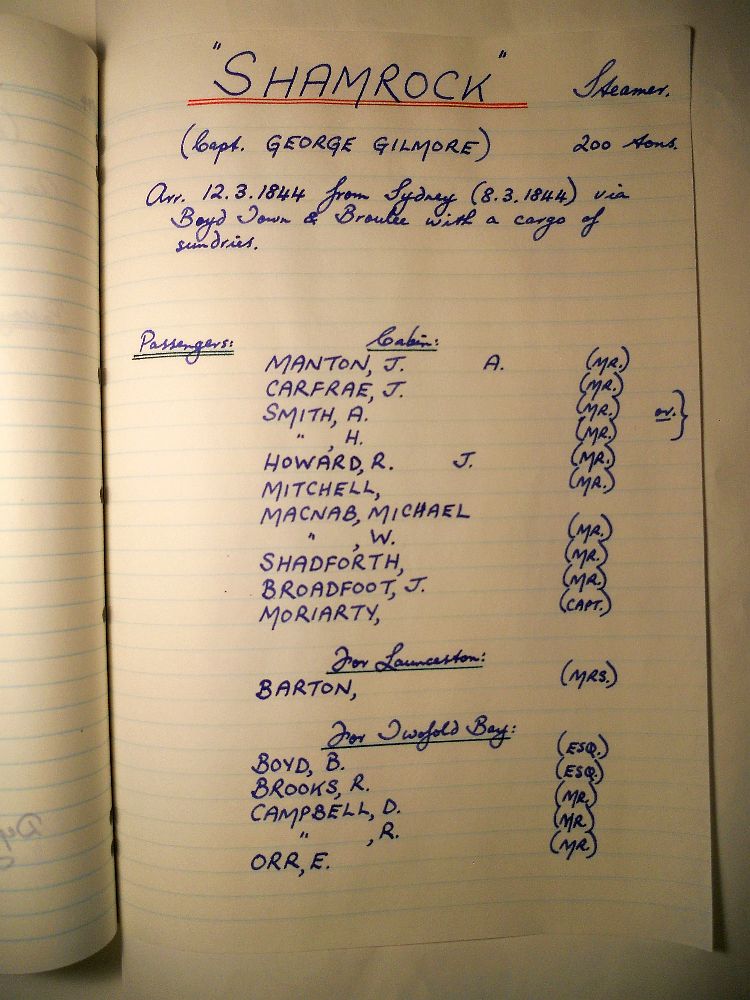 "SHAMROCK" Steamer.
(Capt. GEORGE GILMORE) 200 tons.
Arr. 12.3.1844 from Sydney (8.3.1844) via
Boyd Town & Broulee with a cargo of
sundries.
Passengers: Cabin:
MANTON, J. A. (MR.)
CARFRAE, J. (MR.)
SMITH, A. (MR.)
" , H. (MR.) or.}
HOWARD, R. J. (MR.)
MITCHELL, (MR.)
MACNAB, MICHAEL
" , W. (MR.)
SHADFORTH, (MR.)
BROADFOOT, J. (MR.)
MORIARTY, (CAPT.)
For Launceston:
BARTON, (MRS.)
For Twofold Bay:
BOYD, B. (ESQ.)
BROOKS, R. (ESQ.)
CAMPBELL, D. (MR.)
" , R. (MR.)
ORR, E. (MR.)